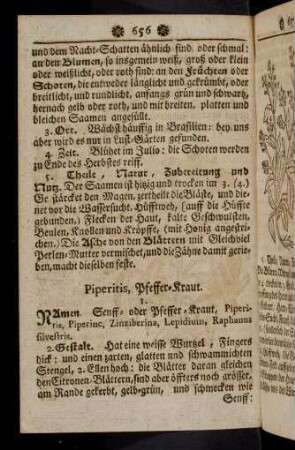 ❁ 656 ❁
und dem Nacht-Schatten ähnlich sind, oder schmal:
an den Blumen, so insgemein weiß, groß oder klein
oder weißlicht, oder roth sind: an den Früchten oder
Schoten, die entweder länglicht und gekrümbt, oder
breitlicht, und rundlicht, anfangs grün und schwarz,
hernach gelb oder roth, und mit breiten, platten und
bleichen Saamen angefüllt.
3. Ort. Wächst häuffig in Brasilien: bey uns
aber wird es nur in Lust-Gärten gefunden.
4. Zeit. Blühet im Julio: die Schoten werden
zu Ende des Herbstes reiff.
5. Theile, Natur, Zubereitung und
Nutz. Der Saamen ist hizig und trocken im 3. (4.)
Er stärcket den Magen, zertheilt die Bläste, und die-
net vor die Wassersucht, Hüfftweh, (auff die Hüffte
gebunden.) Flecken der Haut, kalte Geschwulsten,
Beulen, Knollen und Kröpffe, (mit Honig angestri-
chen.) Die Asche von den Blättern mit Gleichviel
Perlen-Mutter vermischet, und die Zähne damit gerie-
ben, macht dieselben feste.
Piperitis, Pfeffer-Kraut.
1.
NAmen. Senff- oder Pfeffer-Kraut, Piperi-
tis, Piperine, Zinziberina, Lepidium, Raphanus
silvestris.
2. Gestalt. Hat eine weisse Wurzel, Fingers
dick: und einen zarten, glatten und schwammichten
Stengel, 2. Ellen hoch: die Blätter daran gleichen
den Citronen-Blättern, sind aber öffters noch grösser,
am Rande gekerbt, gelb-grün, und schmecken wie
Senff: